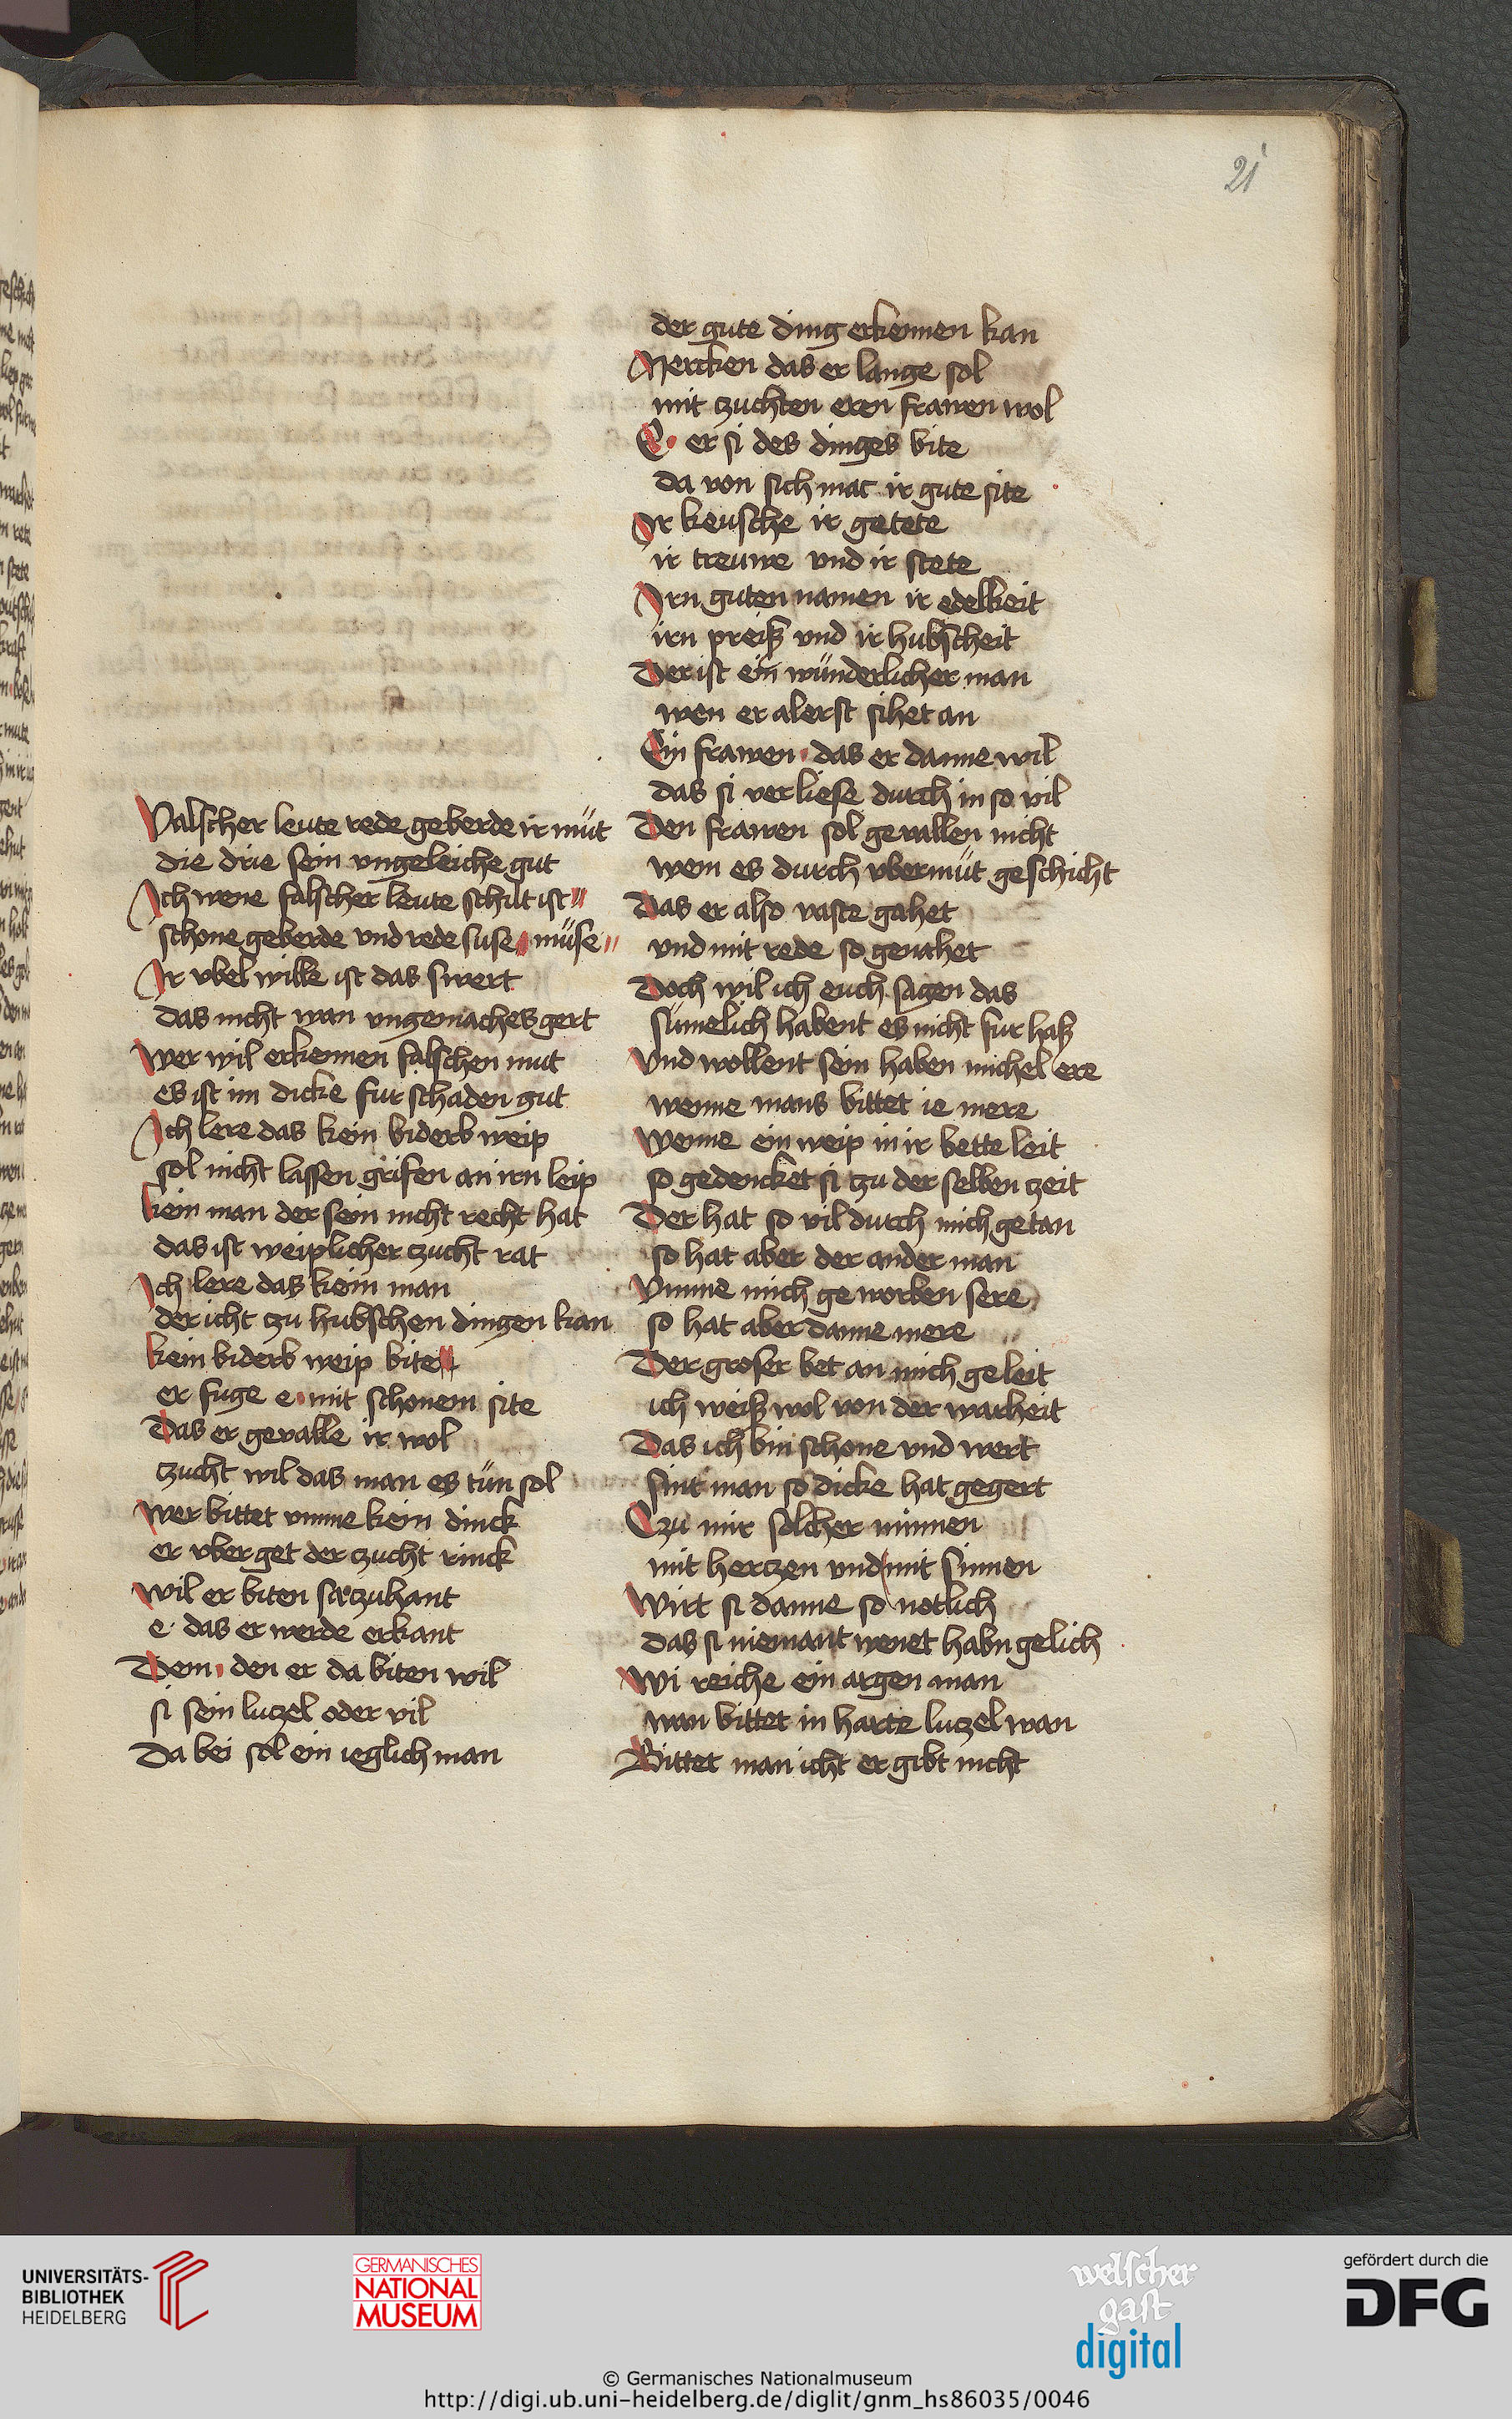 21
Valscher leute rede geberde ir můt
die drie sein ungeleiche gut
Ich wene falscher leute schilt ist
schone geberde vnd rede suse můse
Ir vbel wille ist das swert
das nicht wan ungemaches gert
Wer wil erkennen falschen mut
es ist im dicke fur schaden gut
Ich lere das kein biderb weip
sol nicht lassen grifen an irn leip
kein man der sein nicht recht hat
das ist weiplicher zucht rat
Ich lere das kein man
der icht zu hubschen dingen kan
kein biderb weip bite
er fuge e mit schonem site
Das er gevalle ir wol
zucht wil das man es tůn sol
Wer bittet vmme kein dinck
er vber get der zucht rinck
Wil er biten sa zuhant
e das er werde erkant
Dem den er da biten wil
si sein luzel oder vil
Da bei sol ein ieglich man
der gute ding erkennen kan
Mercken das er lange sol
mit zuchten eren frawen wol
E er si des dinges bite
da von sich mac ir gute site
Ir keusche ir getete
ir treuwe vnd ir stete
Irn guten namen ir edelkeit
irn preiß vnd ir hubscheit
Der ist ein wůnderlicher man
wen er alerst sihet an
Ein frawen das er danne wil
das si verliese durch in so vil
Den frawen sol gevallen nicht
wem es durch vbermůt geschicht
Das er also vaste gahet
vnd mit rede so genahet
Doch wil ich euch sagen das
sůmelich habent es nicht fur haß
Vnd wollent sein haben michel ere
wenne mans bittet ie mere
Wenne ein weip in ir bette leit
so gedencket si zu der selben zeit
Der hat so vil durch mich getan
so hat aber der ander man
Vmme mich geworben sere
so hat aber danne mere
Der groser bet an mich geleit
ich weiß wol von der warheit
Das ich bin schone vnd wert
sint man so dicke hat gegert
Czu mir solcher minnen
mit herczen vnd mit sinnen
Wirt si danne so notlich
das si niemant wenet habn gelich
Wi reiche ein argen man
wan bittet in harte luzel wan
Bittet man icht er gibt nicht
UNIVERSITÄTS-
BIBLIOTHEK
HEIDELBERG
GERMANISCHES
NATIONAL
MUSEUM
welscher
gast
digital
gefördert durch die
DFG
© Germanisches Nationalmuseum
http://digi.ub.uni-heidelberg.de/diglit/gnm_hs86035/0046